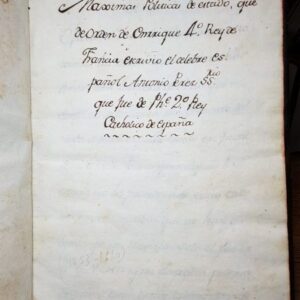 Maxsimas Politicas de estado, que
de orden de Enrrique 4º Rey de
Francia escrivio el celebre es-
pañol Antonio Perez SSrio
que fue de Phe. 2º Rey
Catholico de España